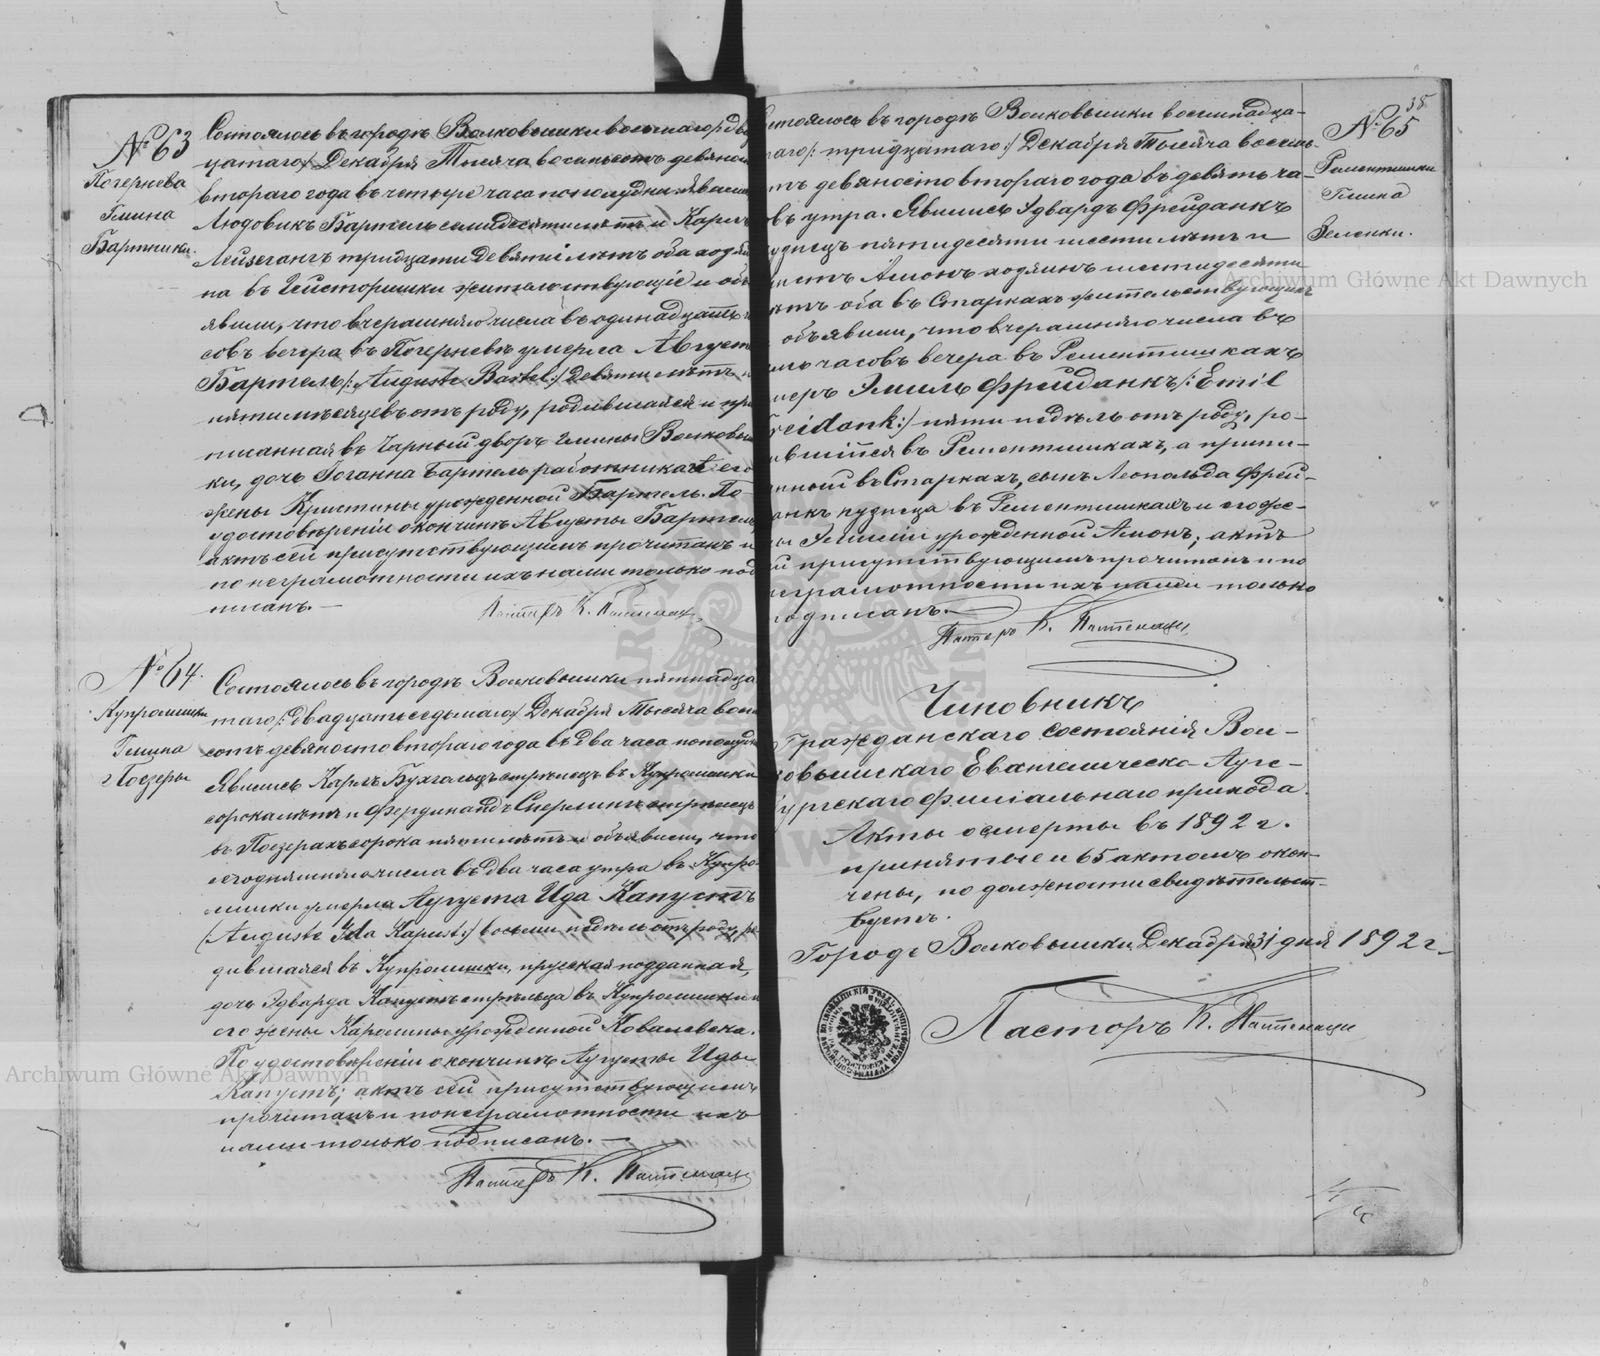 № 63
Погернева
Гмина
Бартники.
Состоялось въ городѣ Волковышки восьмаго/:два
цатаго:/ Декабря Тысяча восемьсотъ девяносто
втораго года въ четыре часа пополудни. Явились
Людовикъ Бартель семидесяти лѣтъ и Карлъ
Лейзегангъ тридцати девяти лѣтъ оба хозяе
на въ жительствующіе и объ
явили, что вчерашняго числа въ одинадцать ча
совъ вечера въ Погерневѣ умерла Августа
Бартель/: Auguste Bartel:/ Девяти лѣтъ и
пяти мѣсяцевъ отъ роду, родившаяся и при
писанная въ Чарный дворъ гмины Волковыш
ки, дочь Іоганна Бартель работника и его
жены Кристины урожденной Бартель. По
удостовѣреніи о кончинѣ Августы Бартель
актъ сей присутствующимъ прочитанъ и
по неграмотности ихъ нами только под
писанъ. —
Пасторъ К.
№ 64.
Купромишки
Гмина
Поезеры
Состоялось въ городѣ Волковышки пятнадца
таго/: двадцать седьмаго:/ Декабря Тысяча восем
сотъ девяносто втораго года въ два часа пополудни
Явились Карлъ стрѣлецъ въ Купромишки
сорока лѣтъ и Фердинандъ Сперлингъ стрѣлецъ
въ Поезерахъ сорока пяти лѣтъ и объявили, что
сегодняшняго числа въ два часа утра въ Купро
мишки умерла Аугуста Ида Капустъ
(Auguste Ida Kapust:/ восьми недѣль отъ роду, ро
дившаяся въ Купромишки, прусская подданная,
дочь Эдварда Капустъ стрѣльца въ Купромишки и
его жены Каролины урожденной Ковалевска.
По удостовѣреніи о кончинѣ Аугусты Иды
Капустъ; актъ сей присутствующимъ
прочитанъ и по неграмотности ихъ
нами только подписанъ. —
Пасторъ К.
38
№ 65
Рементишки
Гмина
Зеленки.
стоялось въ городѣ Волковышки восемнадца-
таго/: тридцатаго:/ Декабря Тысяча восемь-
отъ девяносто втораго года въ девять ча-
овъ утра. Явились Эдвардъ Фрейданкъ
узнецъ пятидесяти шести лѣтъ и
Амонъ хозяинъ шестидесяти
ѣтъ оба въ Старкахъ жительствующіе
объявили, что вчерашняго числа въ
часовъ вечера въ Рементишкахъ
меръ Эмиль Фрейданкъ/: Emil
reidank:/ пяти недѣль отъ роду, ро-
ившійся въ Рементишкахъ, а припи-
анный въ Старкахъ, сынъ Леопольда Фрей-
анкъ кузнеца въ Рементишкахъ и его же-
ны урожденной Амонъ; актъ
й присутствующимъ прочитанъ и по
еграмотности ихъ нами только
одписанъ. —
Пасторъ К.
Чиновникъ
Гражданскаго состоянія Вол-
ковышскаго Евангелическо-Ауг-
бургскаго филіальнаго прихода.
Акты о смерти въ 1892 г.
принятые и 65 актомъ окон-
чены, по должности свидѣтельст-
вуетъ.
Городъ Волковышки, Декабря 31 дня 1892 г.
Пасторъ К.
Archiwum Główne Akt Dawnych
Archiwum Główne Akt Dawnych